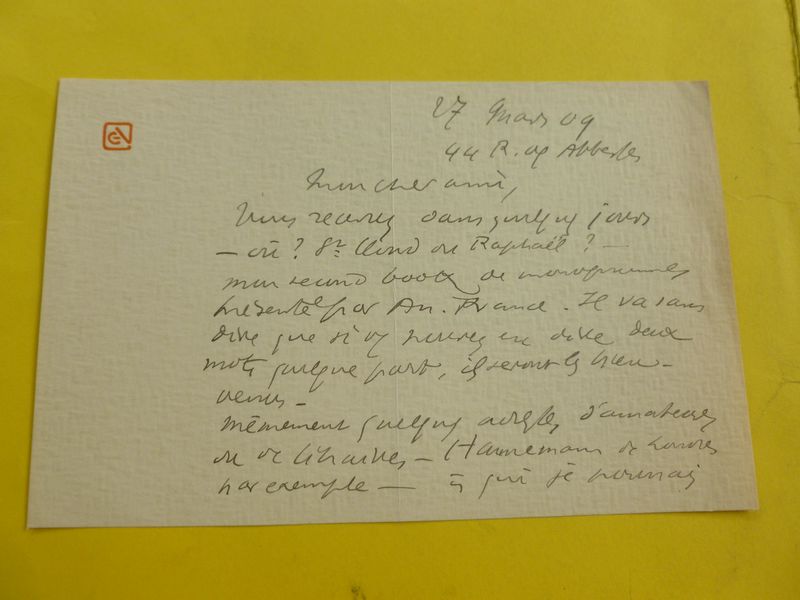 27 Mars 09
44 R. des Abbesses
Mon cher ami,
Vous recevrez dans quelques jours
— où? St Cloud ou Raphaël? —
mon second book de monogrammes
présenté par An. France. Il va sans
dire que si vs pouvez en dire deux
mots quelque part, ils seront les bien-
venus —
Mêmement quelques adresses d'amateurs
ou de libraires — Hannemann de Londres
par exemple — à qui je pourrais